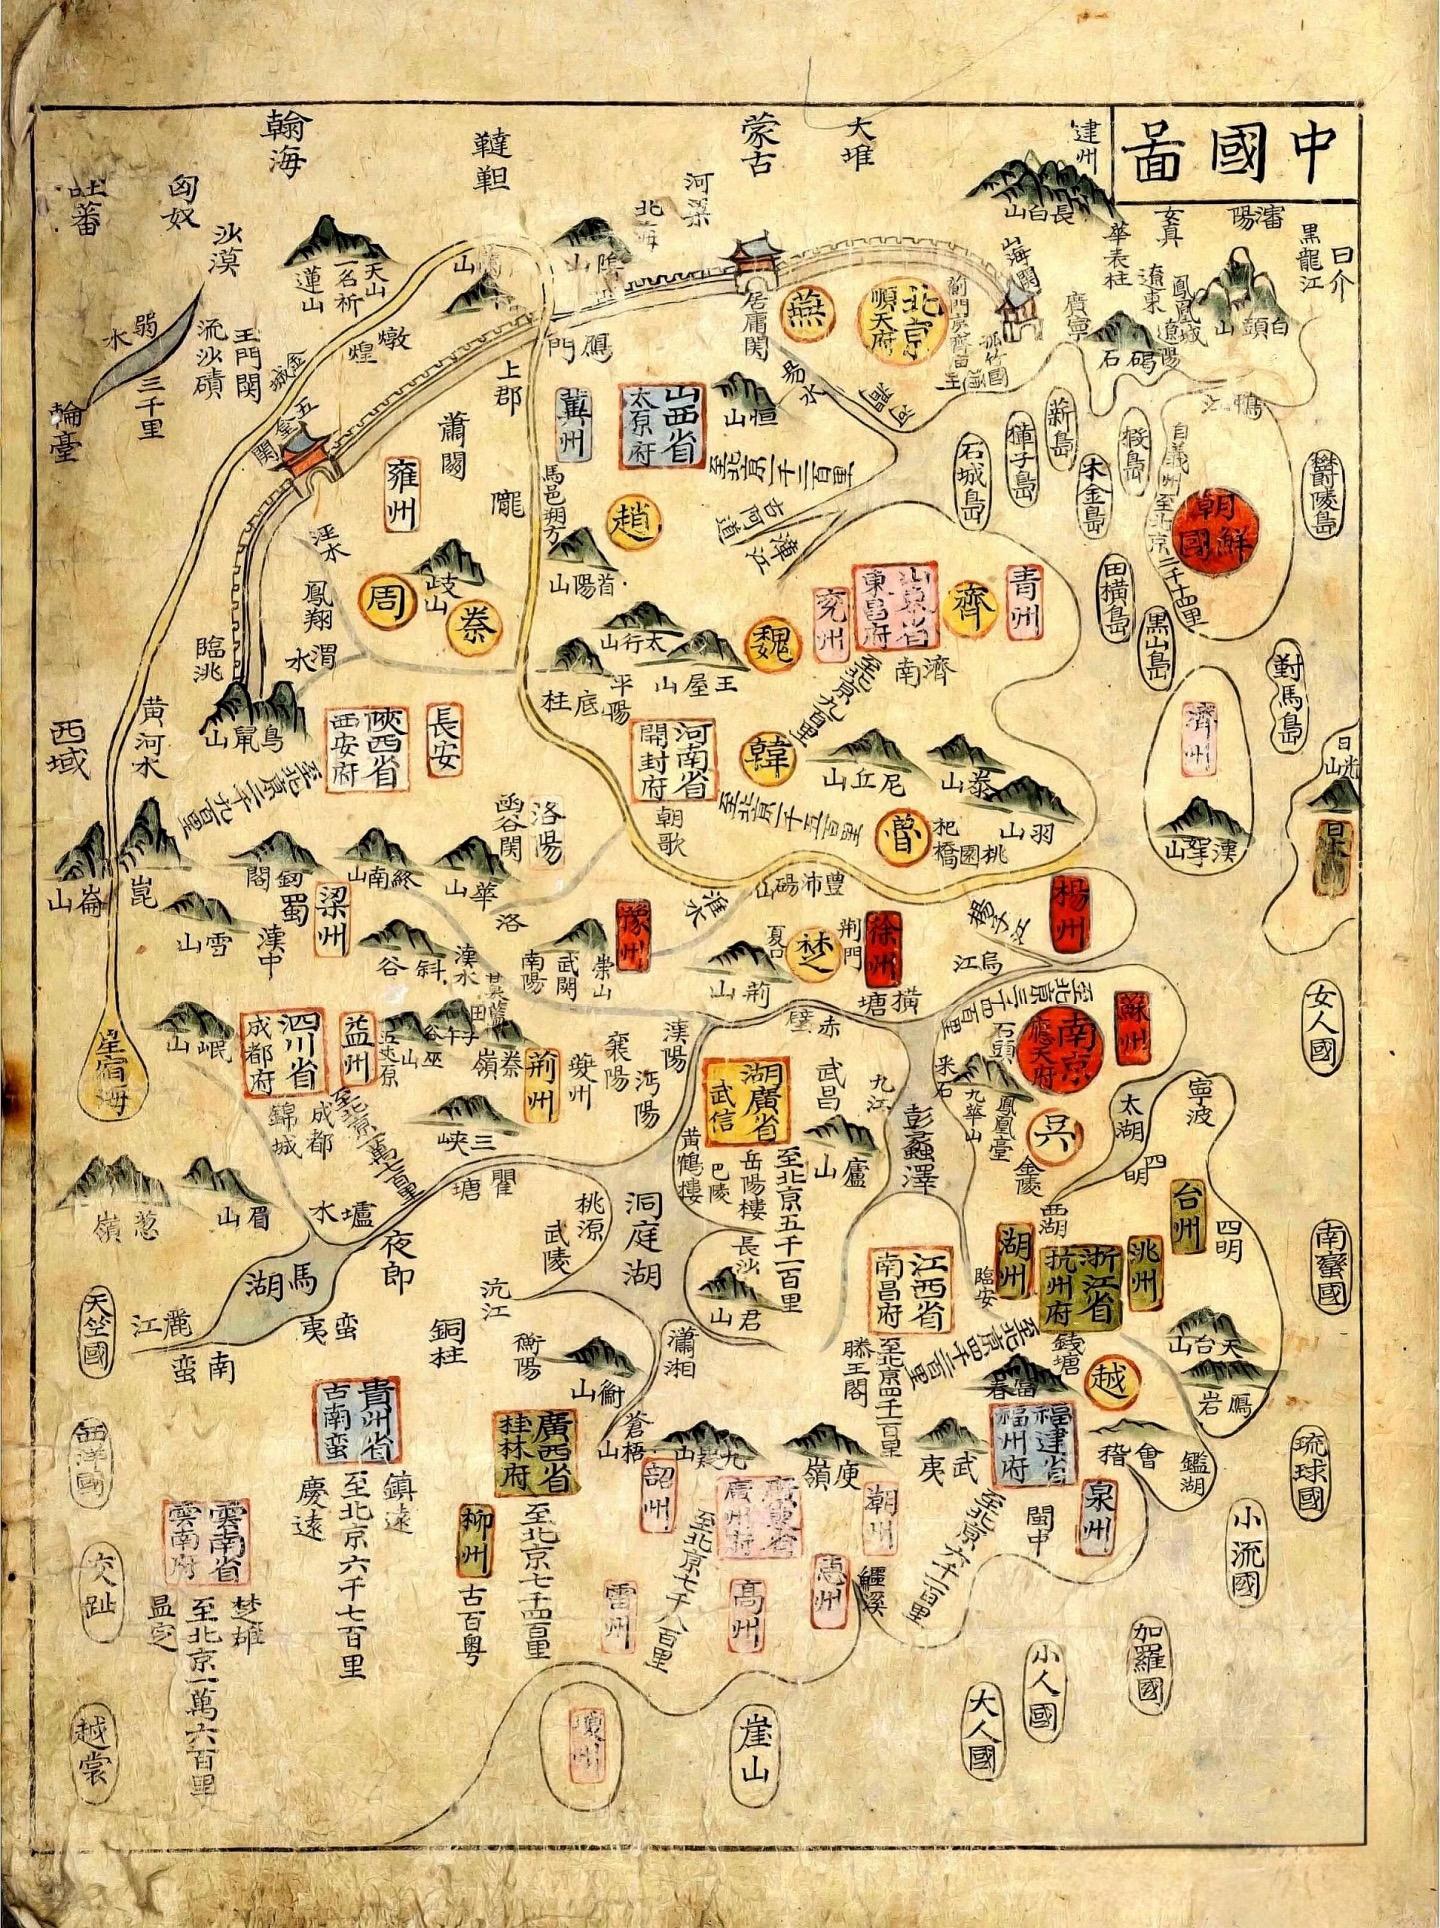 中國啚
建州
大堆
蒙古
韃靼
翰海
匈奴
吐蕃
沙漠
河梁
北海
長白山
女真
瀋陽
黑龍江
日介
華表柱
遼東
鳳凰城
遼陽
廣寧
山海関
白頭山
碣石
鴨江
陰山
天山
一名祈
蓮山
居庸関
燕
北京
順天府
孤竹國
易水
河間
恒山
山西省
太原府
至北京一千二百里
冀州
鴈門
上郡
燉煌
金城
玉門関
流沙磧
弱水
三千里
輪臺
蕭関
隴
雍州
馬邑朔方
趙
首陽山
古河道
漳江
石城島
獐子島
薪島
木金島
椵島
田横島
黒山島
欝陵島
朝鮮國
自義州至北京二千十四里
對馬島
濟州
漢拏山
日光山
日本
青州
齊
山東省
東昌府
兖州
濟南
至北京九百里
魏
太行山
王屋山
平陽
底柱
歧山
周
秦
涇水
鳳翔
渭水
臨洮
鳥鼠山
黄河水
西域
陜西省
西安府
長安
至北京二千九百里
河南省
開封府
朝歌
至北京一千五百里
韓
尼丘山
泰山
羽山
魯
杞橋
桃園
豊沛碭山
洛陽
函谷関
華山
終南山
釼閣
蜀
梁州
漢中
崑崙山
雪山
斜谷
漢水
洛
豫州
崇山
武関
南陽
淮水
荆山
夏口
楚
荆門
徐州
揚州
楊子江
烏江
横塘
赤壁
岷山
四川省
成都府
益州
成都
錦城
至北京一萬七百里
星宿海
秦嶺
荆州
夔州
襄陽
沔陽
漢陽
三峽
瞿塘
湖廣省
武信
武昌
九江
廬山
黄鶴樓
巴陵
岳陽樓
至北京五千一百里
彭蠡澤
南京
應天府
至北京二千四百里
石頭
采石
九華山
鳳凰臺
金陵
吳
蘇州
太湖
四明
寧波
女人國
南蠻國
琉球國
小流國
加羅國
小人國
大人國
西湖
臨安
湖州
浙江省
杭州府
洮州
台州
四明
天台山
鴈岩
錢塘
越
會稽
鑑湖
富春
江西省
南昌府
滕王閣
至北京四千一百里
至北京四千二百里
洞庭湖
桃源
武陵
長沙
君山
瀟湘
沅江
衡陽
衡山
蒼梧山
銅柱
蔥嶺
眉山
瀘水
夜郎
馬湖
麗江
南蛮
蛮夷
天竺國
西洋國
交趾
越裳
貴州省
古南蛮
鎮遠
慶遠
至北京六千七百里
雲南省
雲南府
楚雄
至北京一萬六百里
廣西省
桂林府
柳州
古百粤
至北京七千四百里
九疑山
韶州
庾嶺
廣東省
廣州府
至北京七千八百里
雷州
高州
惠州
潮州
鱷溪
武夷
福建省
福州府
泉州
閩中
至北京六千一百里
瓊州
崖山